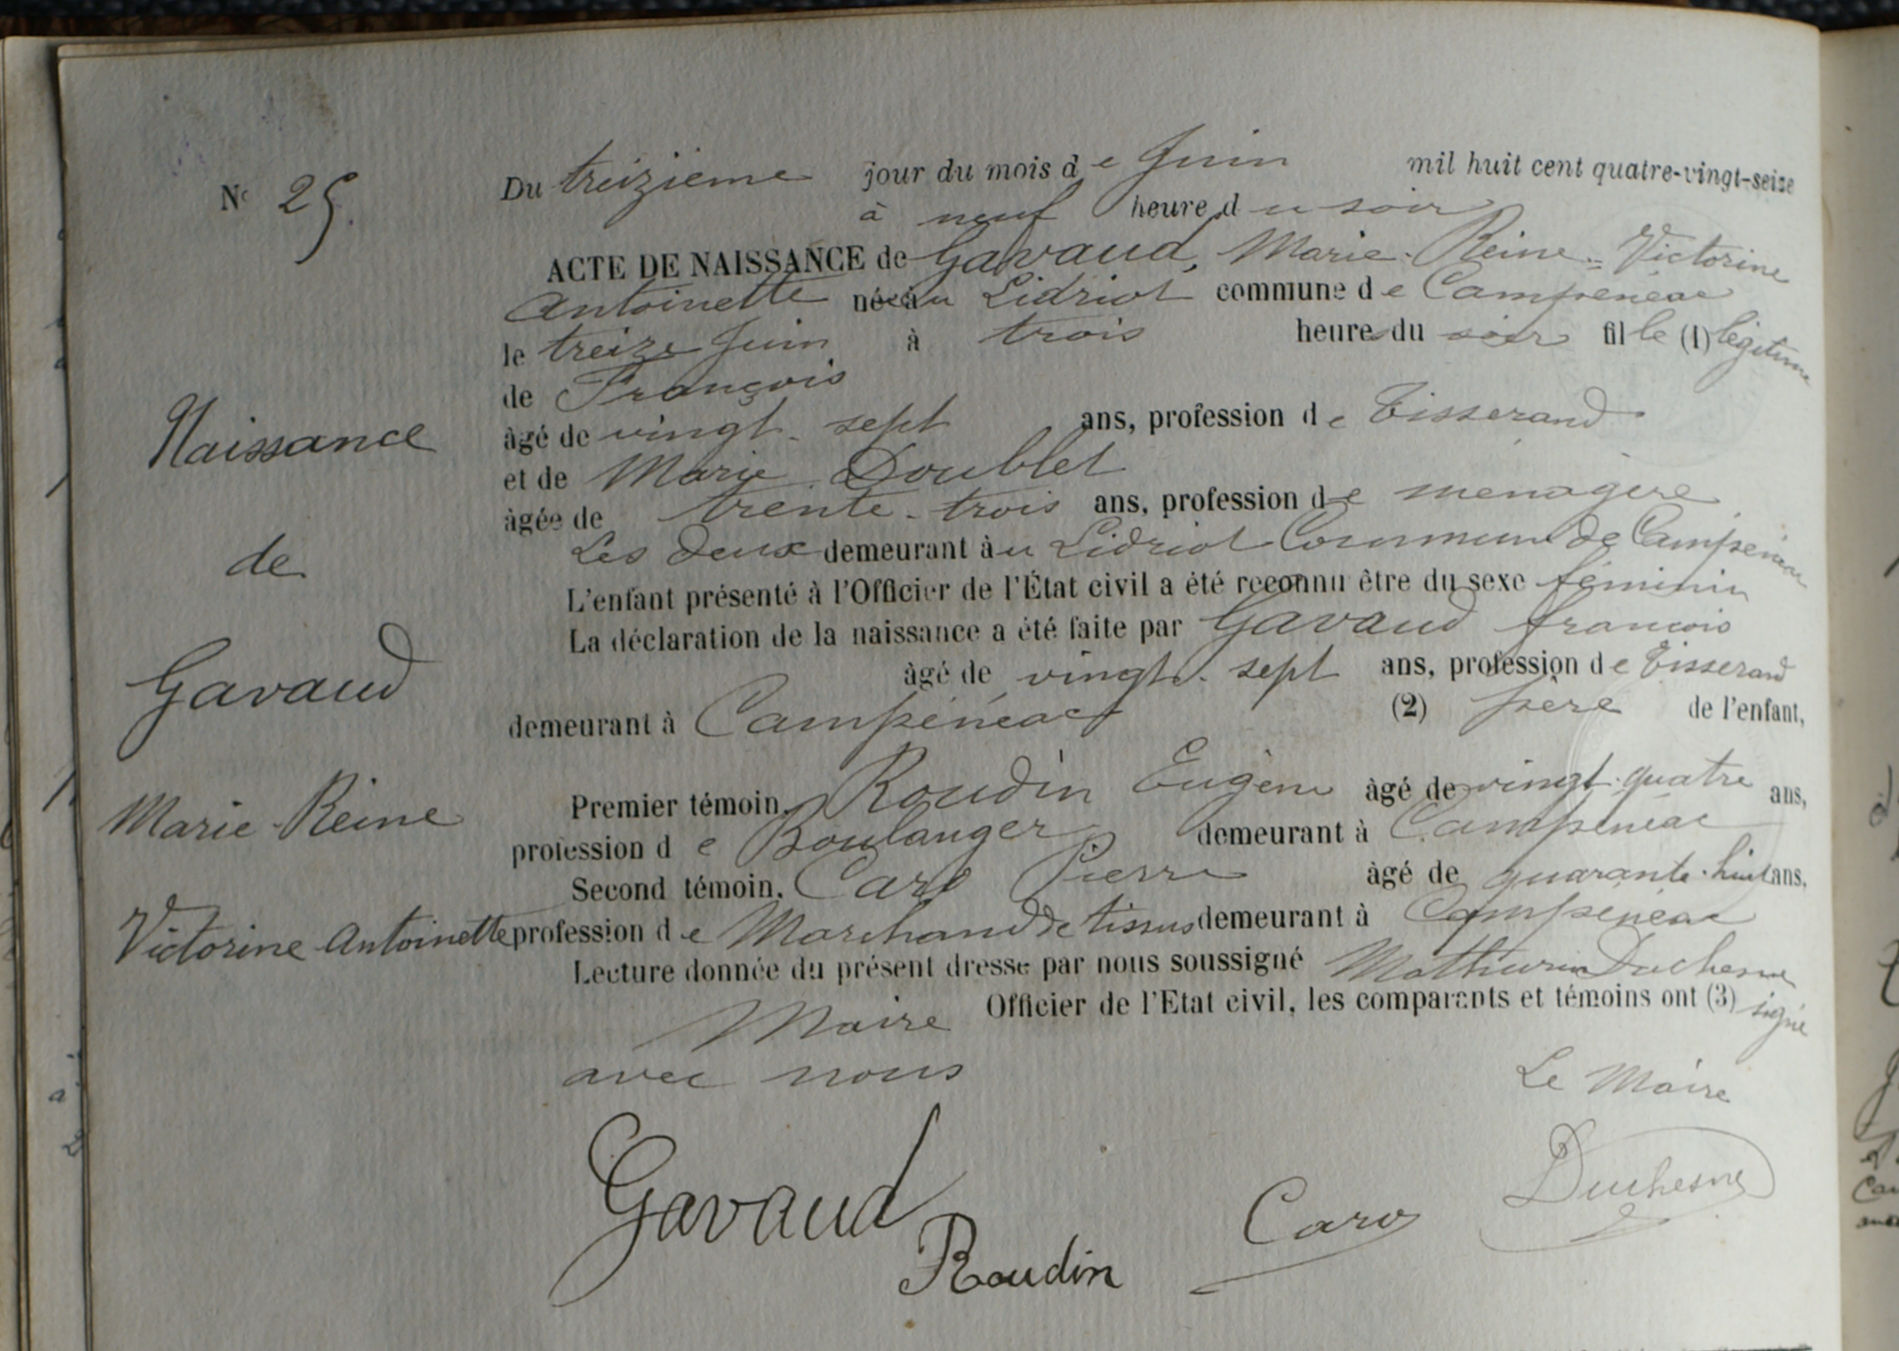 N° 25.
Du treizième jour du mois de Juin mil huit cent quatre-vingt-seize
à neuf heure du soir
ACTE DE NAISSANCE de Gavaud, Marie-Reine-Victorine
Antoinette née au Lidriot commune de Campénéac
le treize Juin à trois heures du soir fille (1) légitime
de François
âgé de vingt-sept ans, profession de Tisserand
et de Marie Doublet
âgée de trente-trois ans, profession de menagère
Les deux demeurant au Lidriot Commune de Campénéac
L'enfant présenté à l'Officier de l'État civil a été reconnu être du sexe féminin
La déclaration de la naissance a été faite par Gavaud François
âgé de vingt-sept ans, profession de Tisserand
demeurant à Campénéac (2) père de l'enfant,
Premier témoin, Roudin Eugène âgé de vingt-quatre ans,
profession de Boulanger demeurant à Campénéac
Second témoin, Caro Pierre âgé de quarante-huit ans,
profession de Marchand de tissus demeurant à Campénéac
Lecture donnée du présent dresse par nous soussigné Mathurin Duchesne
Maire Officier de l'Etat civil, les comparants et témoins ont (3) signé
avec nous
Le Maire
Naissance
de
Gavaud
Marie-Reine
Victorine-Antoinette
Gavaud
Roudin
Caro
Duchesne